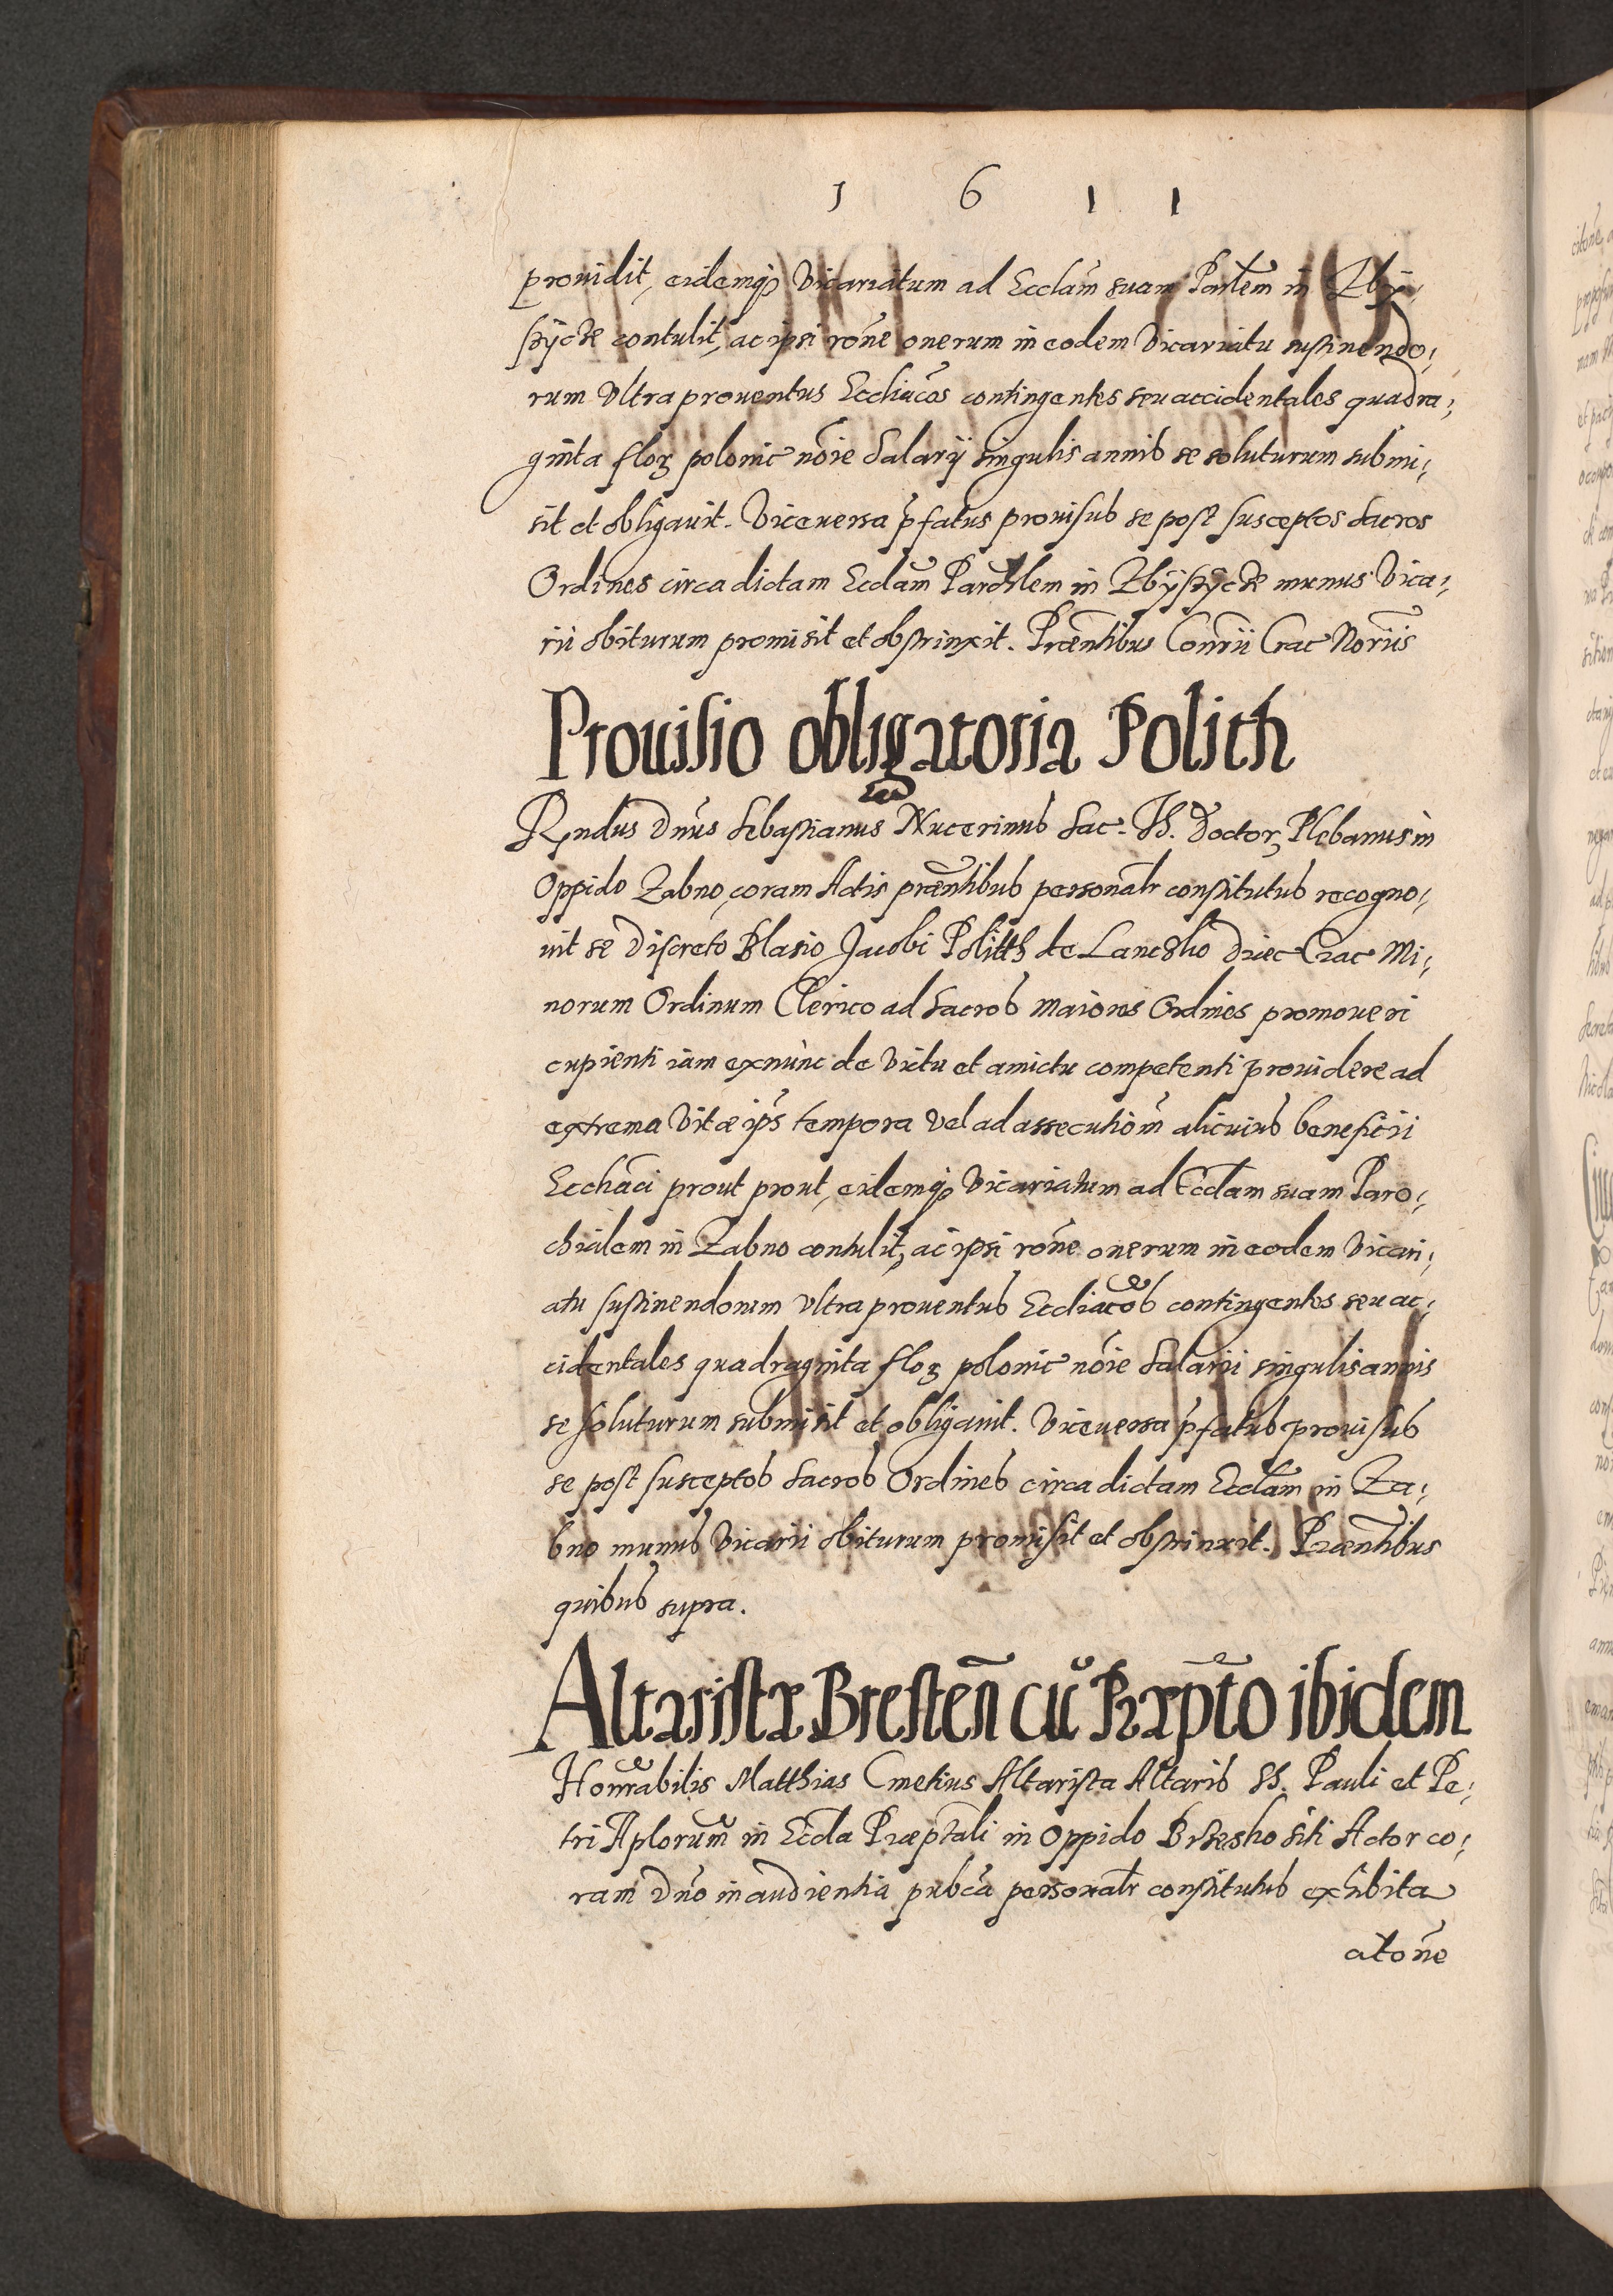 1 6 1 1
prouidit, eidemq₃ Vicariatum ad Eccłam suam Parlem in Zbij¡
ſzycze contulit, ac ipsi rõne onerum in eodem Vicariatu sustinendo¡
rum Vltra prouentus Eccłiacos contingentes seu accidentales quadra¡
ginta floꝝ polonic nõie Salarij singulis annis se soluturum submi¡
sit et obligauit. Viceuersa p̃fatus prouisus se post susceptos Sacros
Ordines circa dictam Eccłam Parochlem in Zbijſzycze munus Vica¡
rii obiturum promisit et obstrinxit. Præntibus Connrii Crac Noriis
Prouisio obligatoria Polith
Rndus Dñus Sebastianus Nucerinus Sac. Th. Doctor, Plebanus in
Oppido Zabno, coram Actis præntibus personalr constitutus recogno¡
uit se Discreto Blasio Jacobi Politth de Lanczko Diec Crac Mi¡
norum Ordinum Clerico ad Sacros Maiores Ordines promoueri
cupienti iam exnunc de Victu et amictu competenti prouidere ad
extrema Vitæ ips̃ tempora Vel ad assecutiom̃ alicuius beneficii
Eccłiaci prout prout, eidemq₃ Vicariatum ad Eccłam suam Paro¡
chialem in Zabno contulit, ac ipsi rõne onerum in eodem Vicari¡
atu sustinendorum Vltra prouentus Eccłiacos contingentes seu ac¡
cidentales quadraginta floꝝ polonic nõie Salarii singulis annis
se soluturum submisit et obligauit. Viceuersa p̃fatus prouisus
se post susceptos Sacros Ordines circa dictam Eccłam in Za¡
bno munus Vicarii obiturum promisit et obstrinxit. Præntibus
quibus supra.
Altaristæ Bresteñ cũ Præpto ibidem
Honrabilis Matthias Cmetius Altarista Altaris SS. Pauli et Pe¡
tri Aplorum in Eccła Præptali in Oppido Brzesko siti Actor co¡
ram Dño in audientia pubca personalr constitutus exhibita
atõne